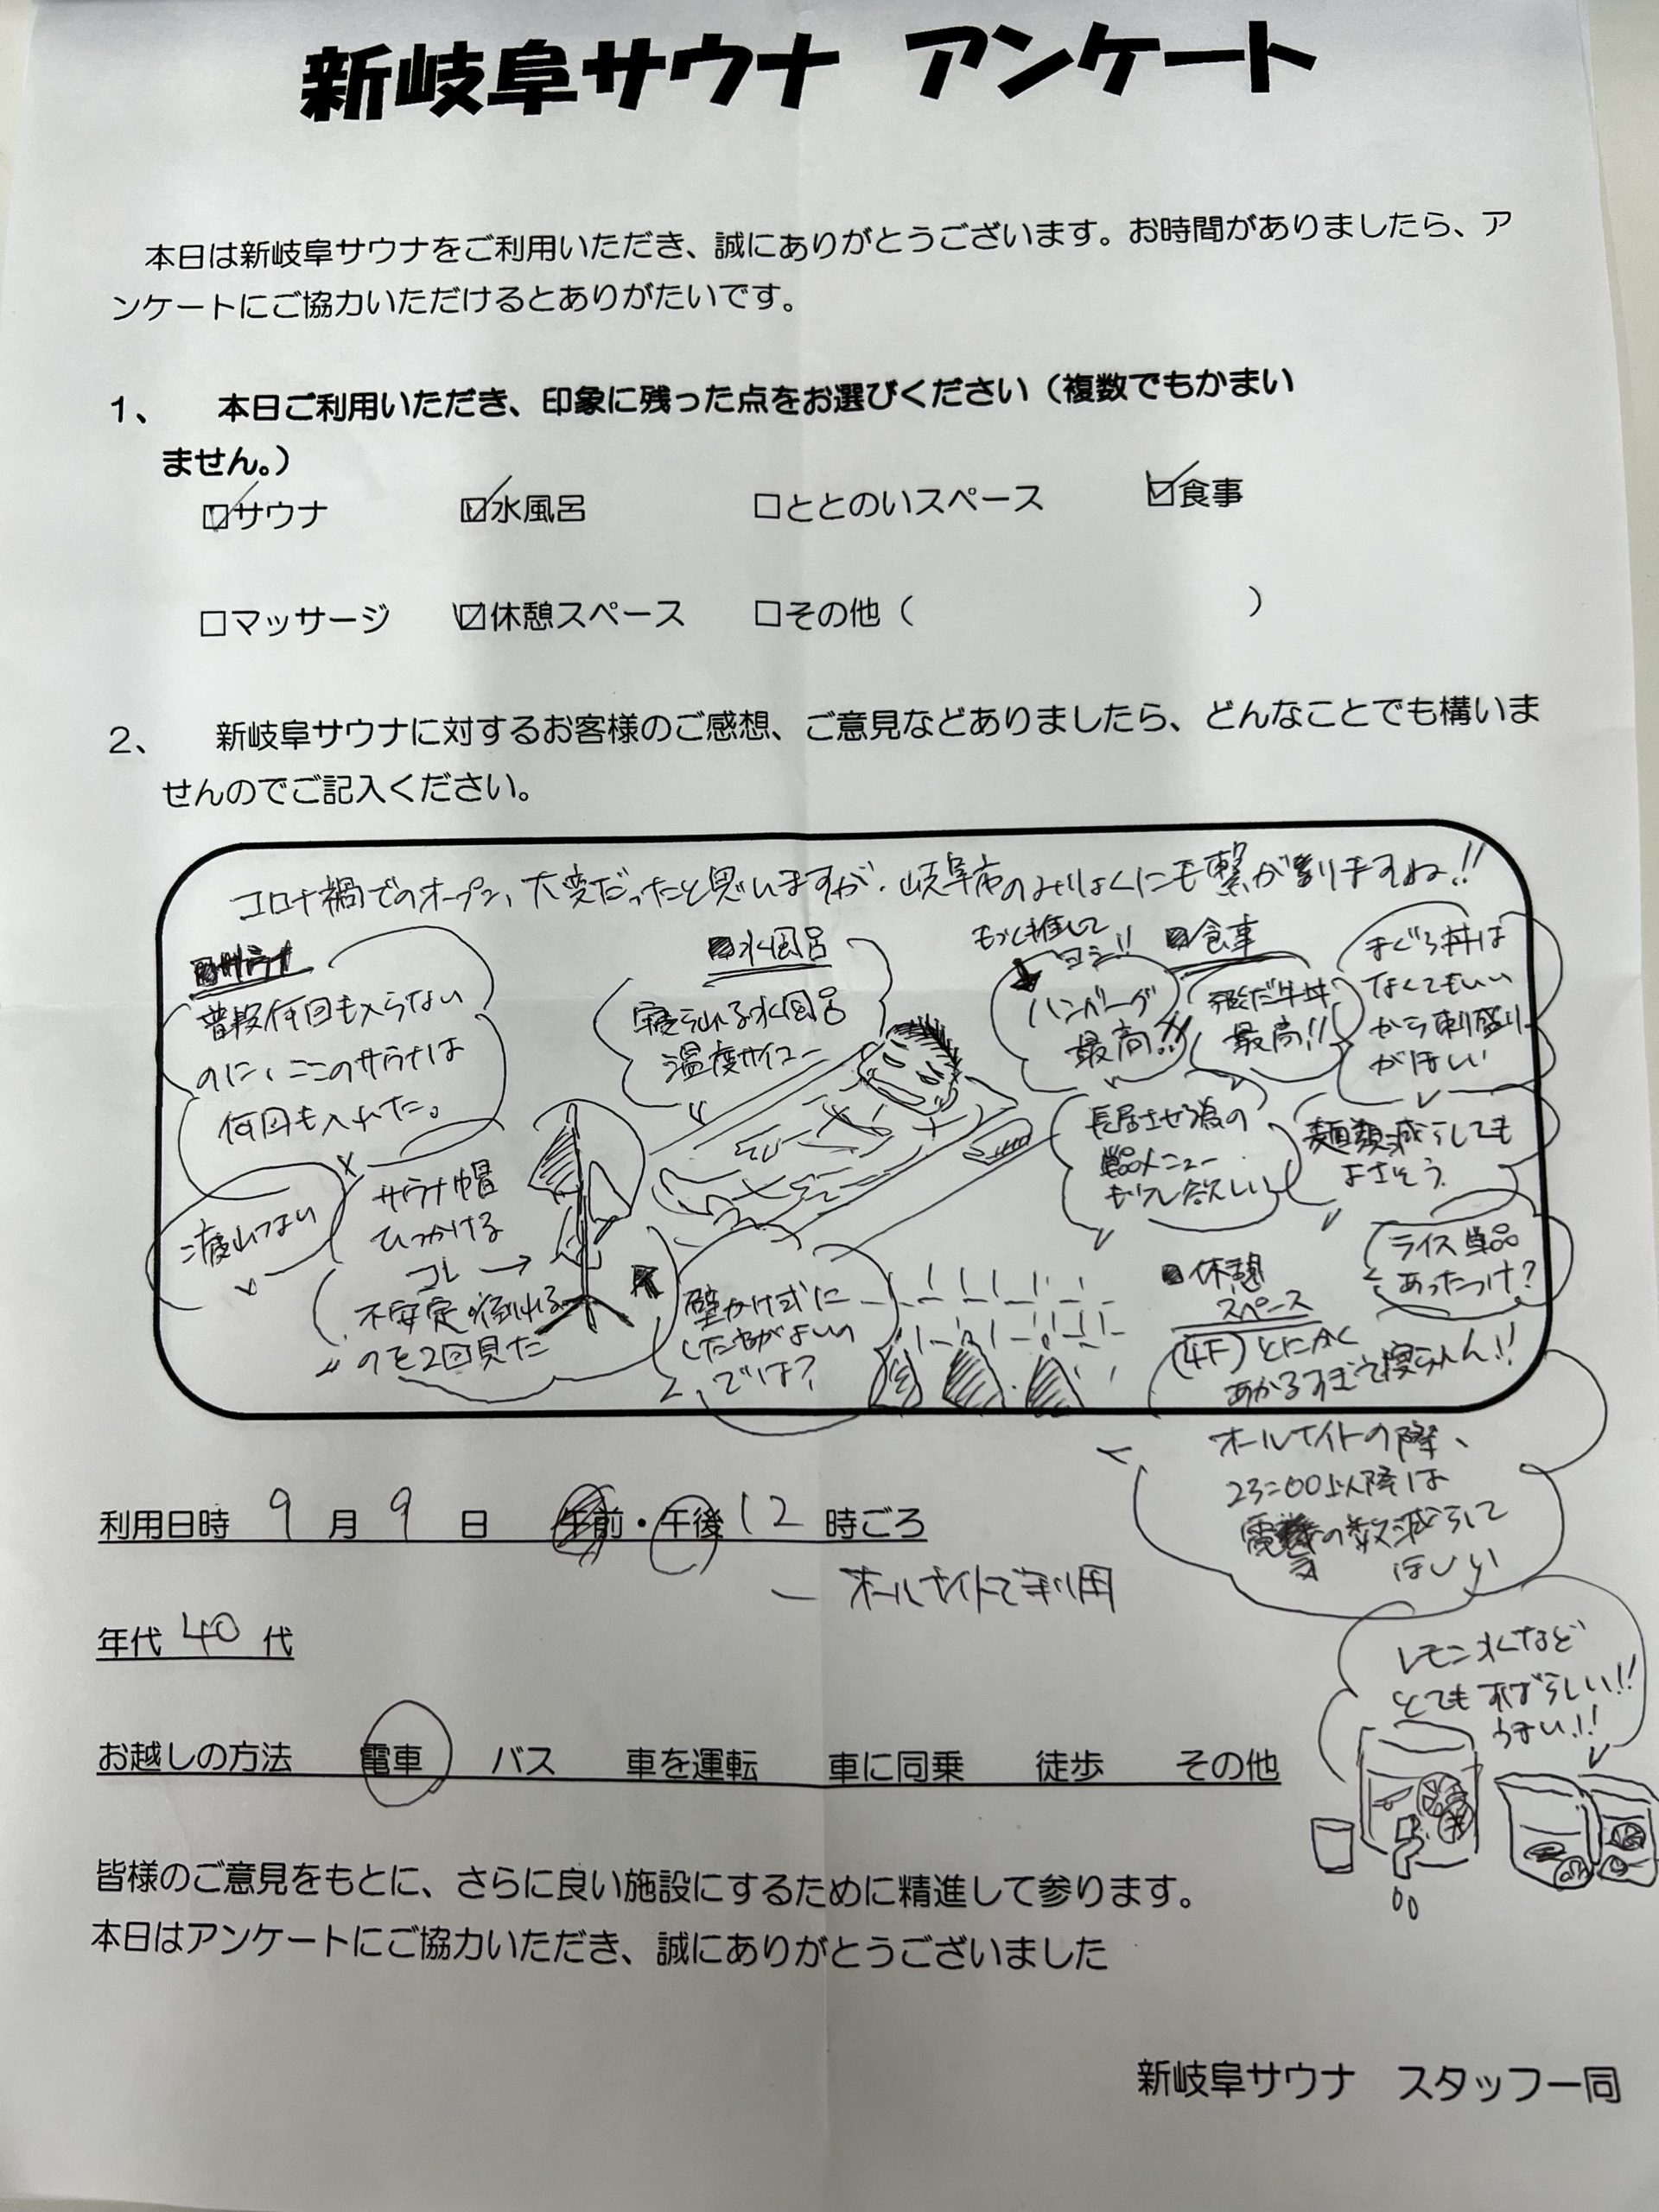 新岐阜サウナ アンケート
本日は新岐阜サウナをご利用いただき、誠にありがとうございます。お時間がありましたら、ア
ンケートにご協力いただけるとありがたいです。
1、 本日ご利用いただき、印象に残った点をお選びください（複数でもかまい
ません。）
☑サウナ ☑水風呂 □ととのいスペース ☑食事
□マッサージ ☑休憩スペース □その他（ ）
2、 新岐阜サウナに対するお客様のご感想、ご意見などありましたら、どんなことでも構いま
せんのでご記入ください。
コロナ禍でのオープン、大変だったと思いますが、岐阜市のみりょくにも繋がりますね!!
■サウナ
普段何回も入らない
のに、ここのサウナは
何回も入れた。
疲れない
サウナ帽
ひっかける
コレ→
不安定 倒れる
のを2回見た
壁かけ式に
した方がよいの
では?
■水風呂
寝られる水風呂
温度サイコー
■食事
もっと推して
ヨシ!!
ハンバーグ
最高!!
飛だ牛丼
最高!!
まぐろ丼は
なくてもいい
から刺盛り
がほしい
長居させる為の
単品メニュー
もう少し欲しい
麺類減らしても
よさそう
ライス単品
あったっけ?
■休憩
スペース
(4F)とにかく
あかるすぎて寝られん!!
オールナイトの際、
23:00以降は
電気の数減らして
ほしい
利用日時 9 月 9 日 午前・午後 12 時ごろ
― オールナイトで利用
年代 40 代
レモン水など
とてもすばらしい!!
うまい!!
お越しの方法 電車 バス 車を運転 車に同乗 徒歩 その他
皆様のご意見をもとに、さらに良い施設にするために精進して参ります。
本日はアンケートにご協力いただき、誠にありがとうございました
新岐阜サウナ スタッフ一同